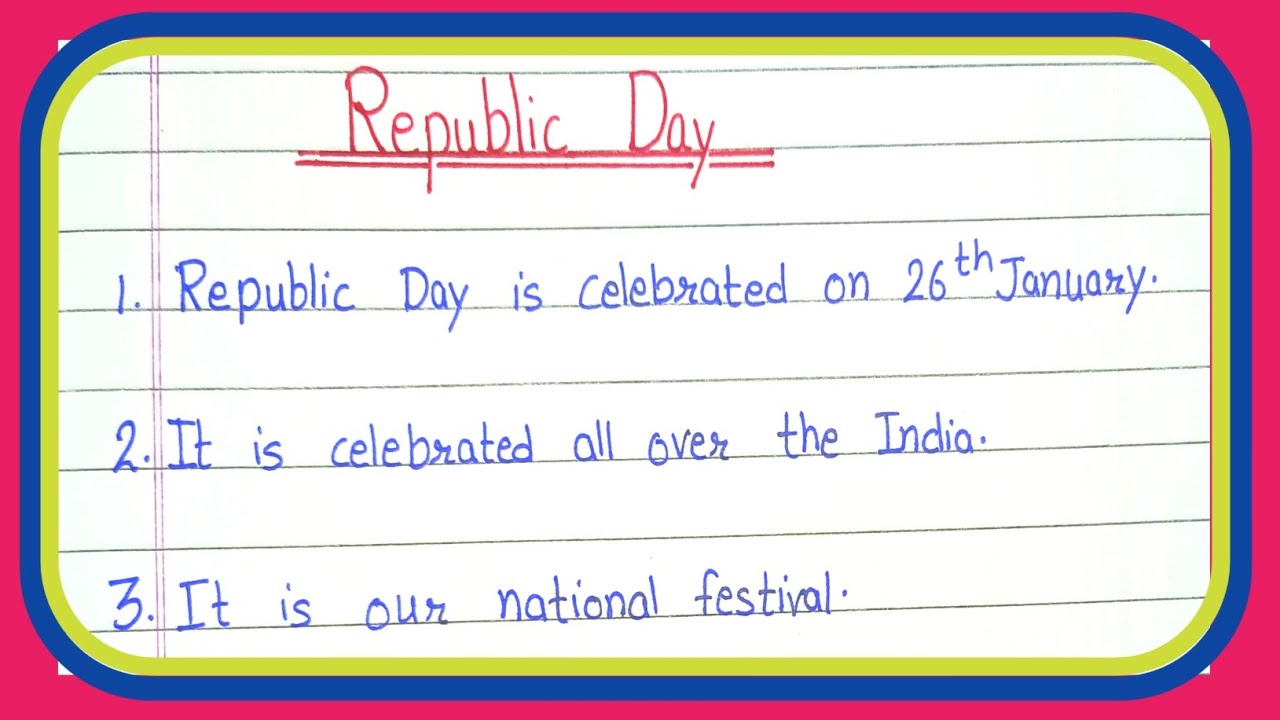 Republic Day
1. Republic Day is celebrated on 26th January.
2. It is celebrated all over the India.
3. It is our national festival.